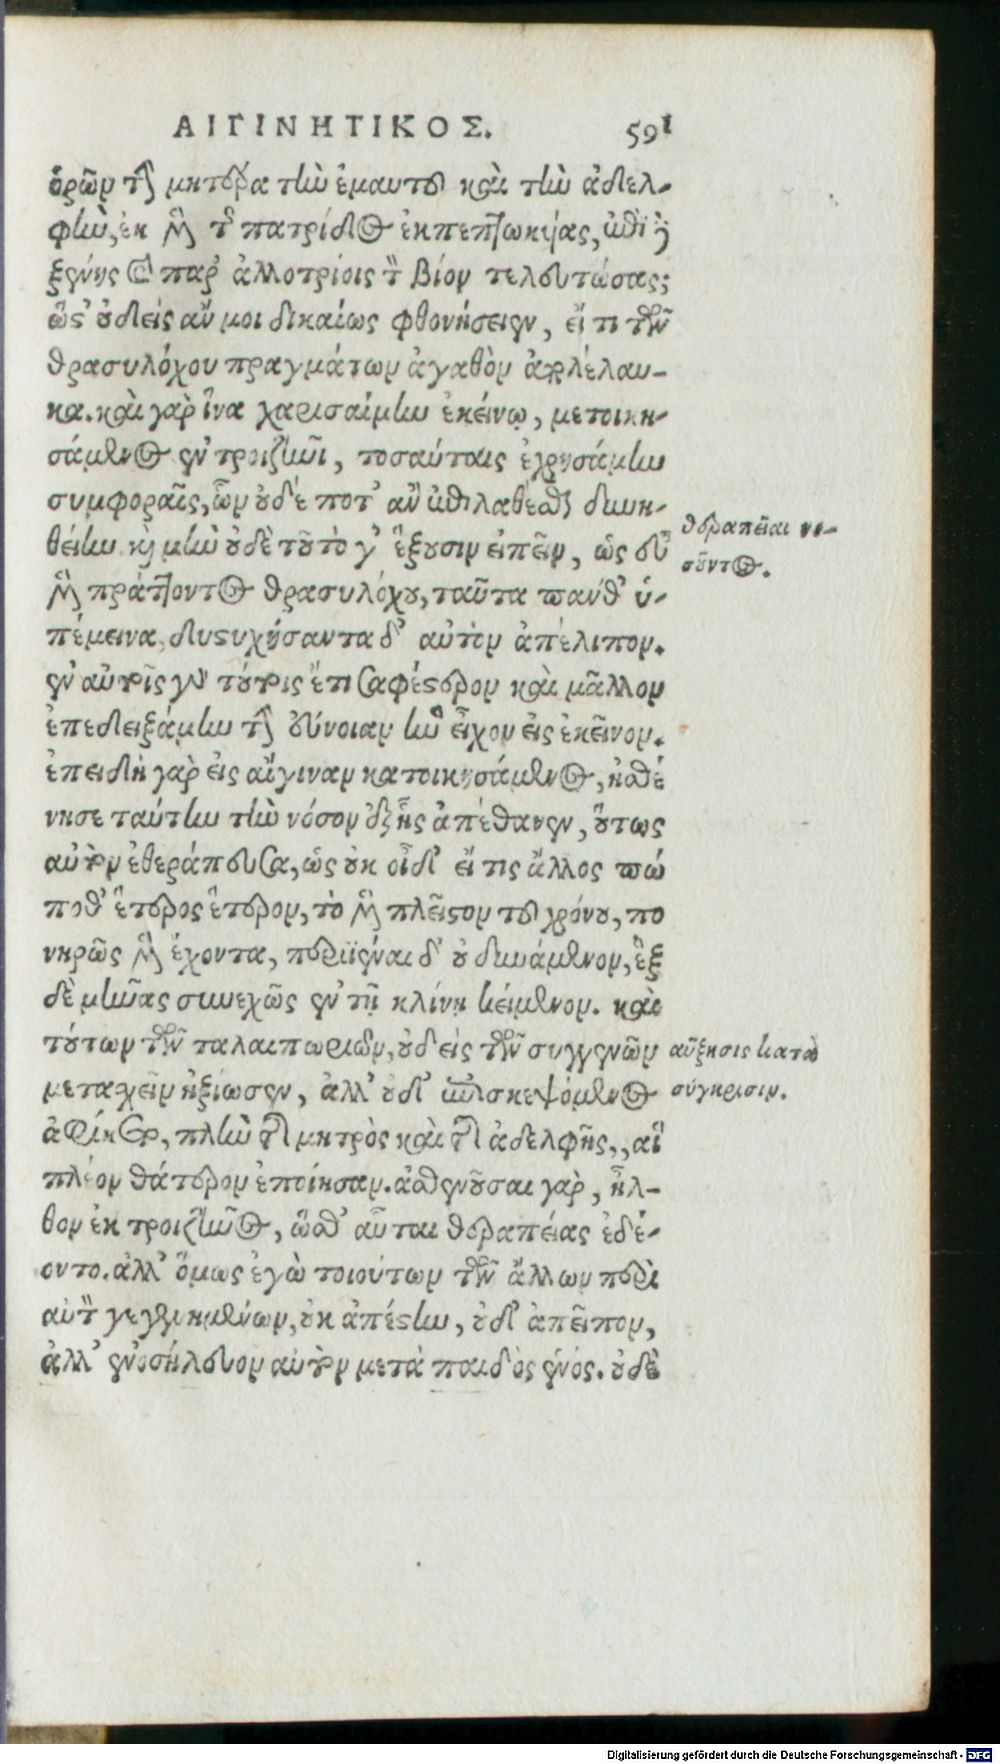 ΑΙΓΙΝΗΤΙΚΟΣ. 591
ὁρῶν τὴν μητέρα τὴν ἐμαυτοῦ καὶ τὴν ἀδελ-
φὴν, ἐκ μὲν τῆς πατρίδος ἐκπεπτωκυίας, ἐπὶ δὲ
ξένης καὶ παρ' ἀλλοτρίοις τὸν βίον τελευτώσας;
ὥστ' οὐδεὶς ἄν μοι δικαίως φθονήσειεν, εἴ τι τῶν
θρασυλόχου πραγμάτων ἀγαθὸν ἀπολέλαυ-
κα. καὶ γὰρ ἵνα χαρισαίμην ἐκείνῳ, μετοικη-
σάμενος ἐν τροιζῆνι, τοσαύταις ἐχρησάμην
συμφοραῖς, ὧν οὐδέ ποτ' ἂν ἐπιλαθέσθαι δυνη-
θείην. καὶ μὴν οὐδὲ τοῦτό γ' ἕξουσιν εἰπεῖν, ὡς εὖ
θεραπεῖαι νο-
σοῦντος.
μὲν πράττοντος θρασυλόχου, ταῦτα πάνθ' ὑ-
πέμεινα, δυστυχήσαντα δ' αὐτὸν ἀπέλιπον.
ἐν αὐτοῖς γὰρ τούτοις ἔτι σαφέστερον καὶ μᾶλλον
ἐπεδειξάμην τὴν εὔνοιαν ἣν εἶχον εἰς ἐκεῖνον.
ἐπειδὴ γὰρ εἰς αἴγιναν κατοικησάμενος, ἠσθέ
νησε ταύτην τὴν νόσον ἐξ ἧς ἀπέθανεν, οὕτως
αὐτὸν ἐθεράπευσα, ὡς οὐκ οἶδ' εἴ τις ἄλλος πώ
ποθ' ἕτερος ἕτερον, τὸ μὲν πλεῖστον τοῦ χρόνου, πο
νηρῶς μὲν ἔχοντα, περιϊέναι δ' οὐ δυνάμενον, ἓξ
δὲ μῆνας συνεχῶς ἐν τῇ κλίνῃ κείμενον. καὶ
τούτων τῶν ταλαιπωριῶν, οὐδεὶς τῶν συγγενῶν
αὔξησις κατὰ
σύγκρισιν.
μετασχεῖν ἠξίωσεν, ἀλλ' οὐδ' ἐπισκεψόμενος
ἀφίκετο, πλὴν τῆς μητρὸς καὶ τῆς ἀδελφῆς, αἳ
πλέον θάτερον ἐποίησαν. ἀσθενοῦσαι γὰρ, ἦλ-
θον ἐκ τροιζῆνος, ὥσθ' αὗται θεραπείας ἐδέ-
οντο. ἀλλ' ὅμως ἐγὼ τοιούτων τῶν ἄλλων περὶ
αὐτὸν γεγενημένων, οὐκ ἀπέστην, οὐδ' ἀπεῖπον,
ἀλλ' ἐνοσήλευον αὐτὸν μετὰ παιδὸς ἑνός. οὐδὲ
Digitalisierung gefördert durch die Deutsche Forschungsgemeinschaft - DFG